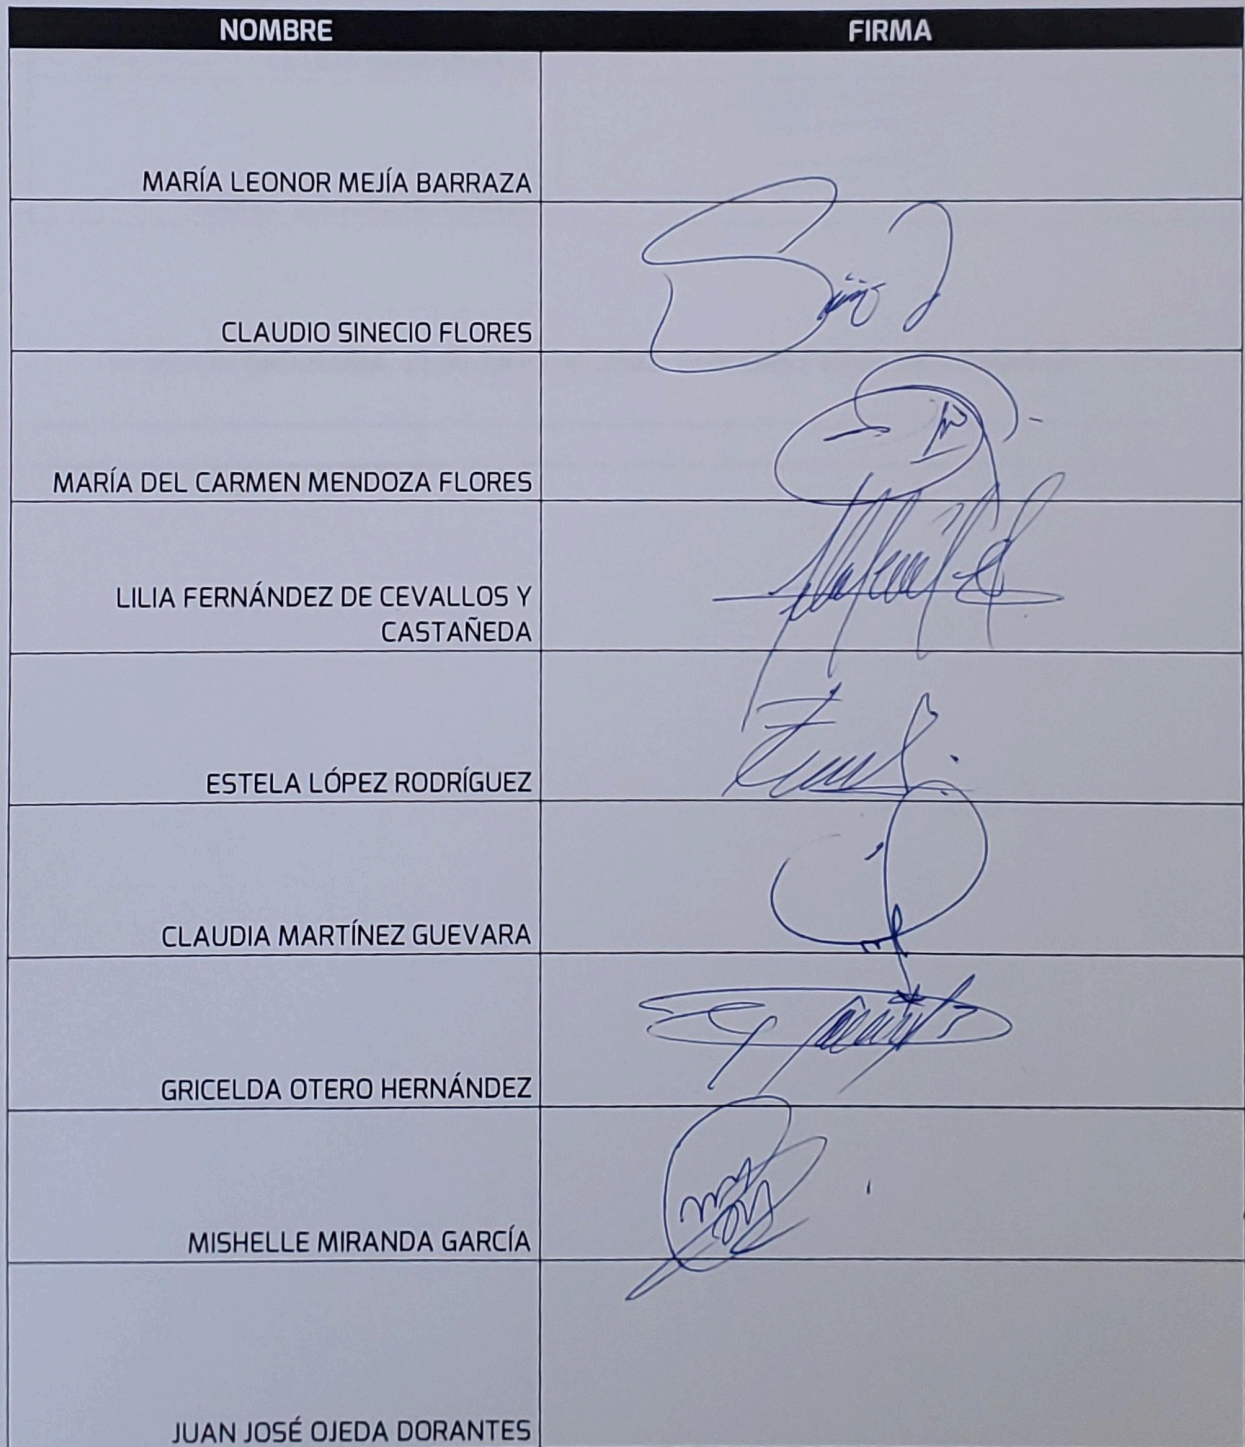 NOMBRE FIRMA
MARÍA LEONOR MEJÍA BARRAZA
CLAUDIO SINECIO FLORES
MARÍA DEL CARMEN MENDOZA FLORES
LILIA FERNÁNDEZ DE CEVALLOS Y
CASTAÑEDA
ESTELA LÓPEZ RODRÍGUEZ
CLAUDIA MARTÍNEZ GUEVARA
GRICELDA OTERO HERNÁNDEZ
MISHELLE MIRANDA GARCÍA
JUAN JOSÉ OJEDA DORANTES